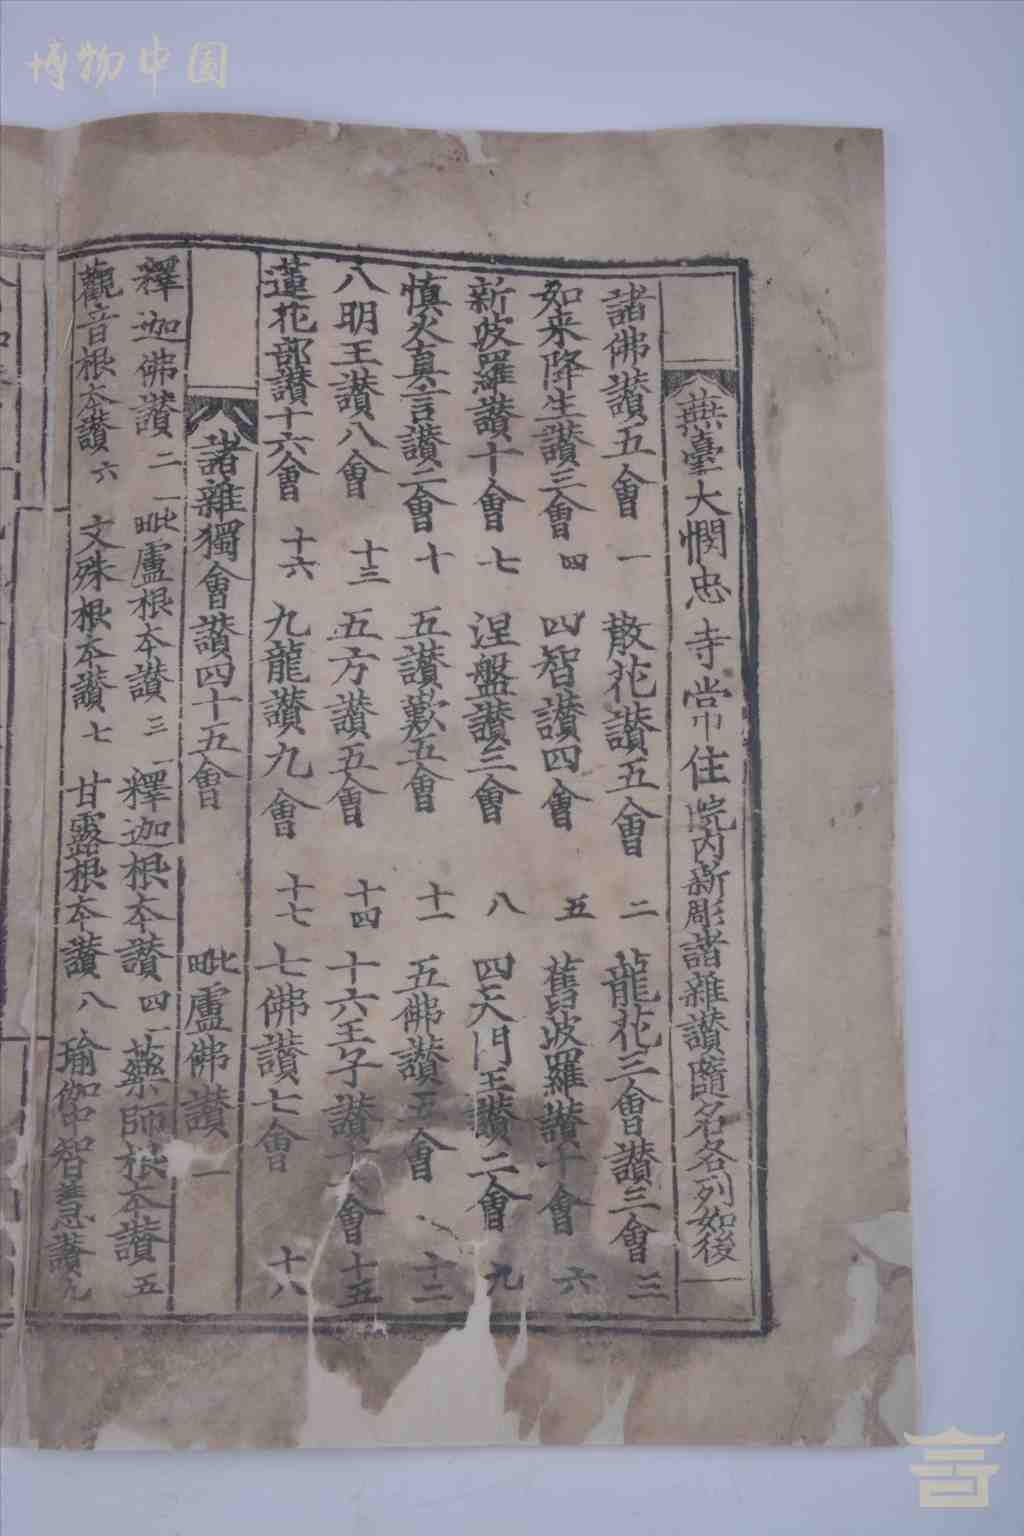 博物中国
無臺大憫忠寺常住院內新彫諸雜讃隨名各列如後
諸佛讃五會 一 散花讃五會 二 龍花三會讃三會 三
如来降生讃三會 四 四智讃四會 五 舊波羅讃十會 六
新波羅讃十會 七 涅盤讃三會 八 四天門王讃二會 九
慎火真言讃二會 十 五讃歎五會 十一 五佛讃五會 十二
八明王讃八會 十三 五方讃五會 十四 十六王子讃 會 十五
蓮花部讃十六會 十六 九龍讃九會 十七 七佛讃七會 十八
諸雜獨會讃四十五會 毗盧佛讃 一
釋迦佛讃 二 毗盧根本讃 三 釋迦根本讃 四 藥師根本讃 五
觀音根本讃 六 文殊根本讃 七 甘露根本讃 八 瑜伽中智慧讃 九